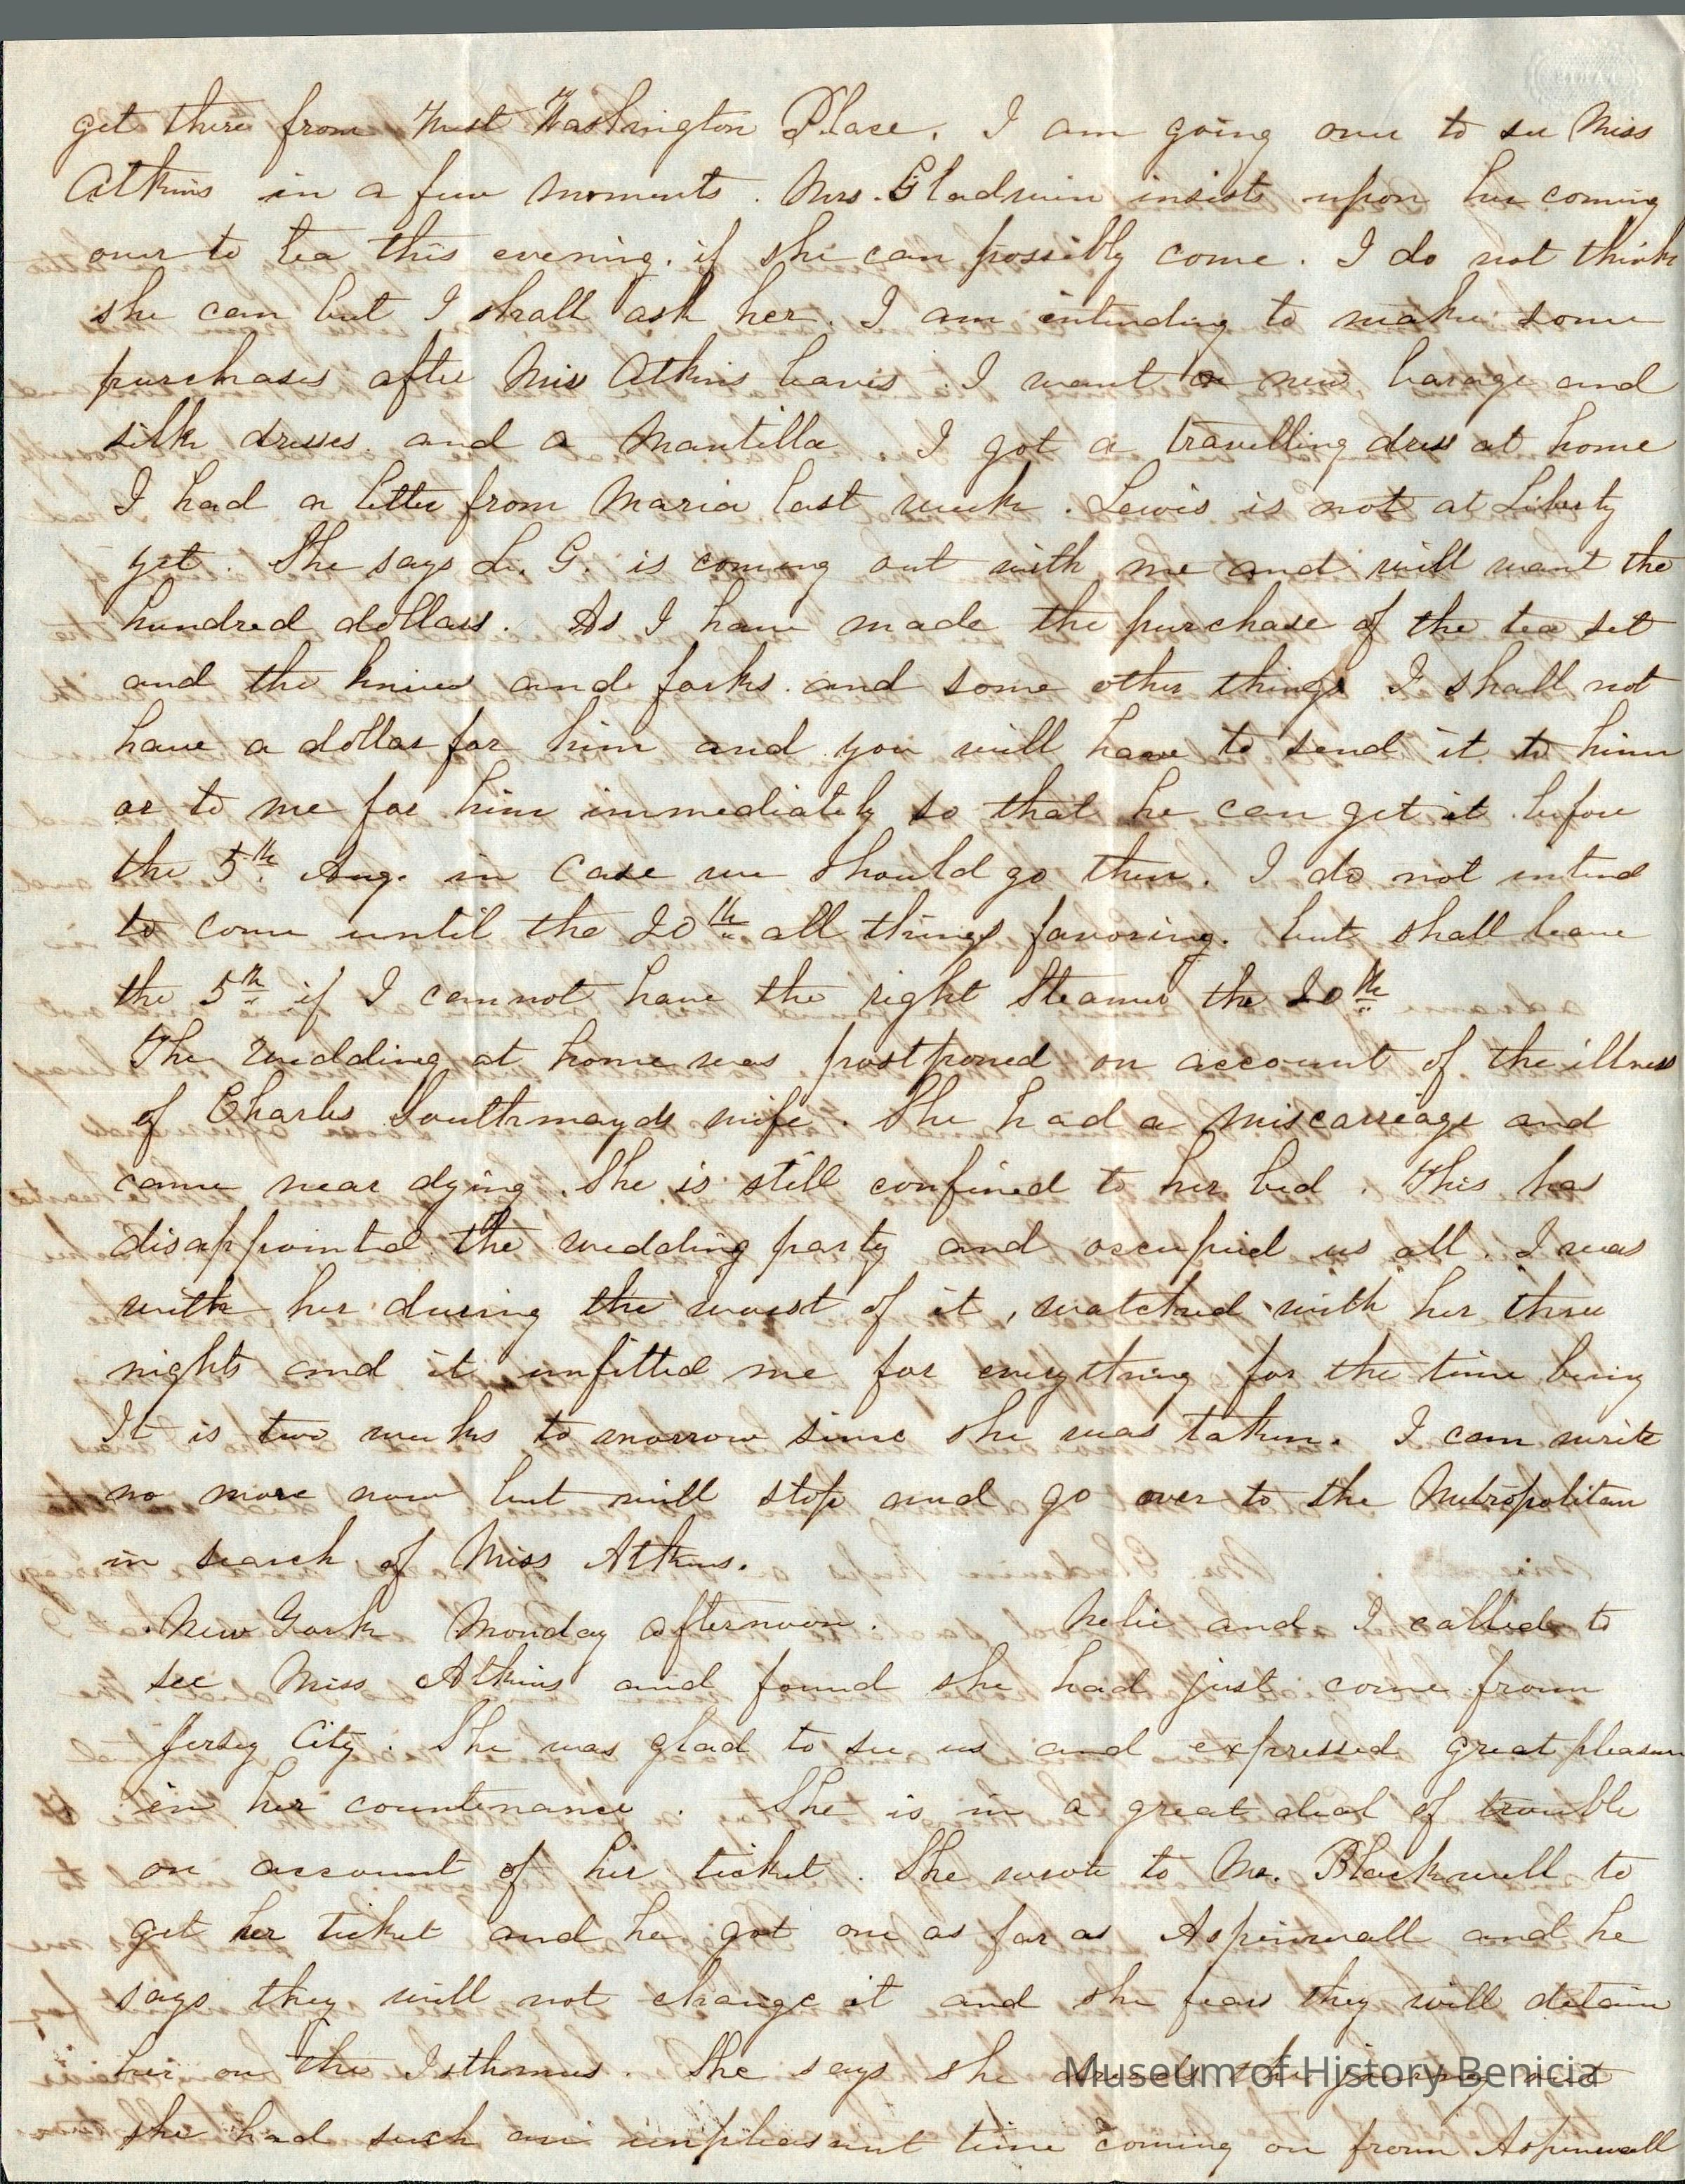 get there from West Washington Place. I am going over to see Miss
Atkins in a few moments. Mrs. Gladwin insists upon her coming
over to tea this evening. if she can possibly come. I do not think
she can but I shall ask her. I am intending to make some
purchases after Miss Atkins leaves. I want a new barage and
silk dresses. and a Mantilla. I got a travelling dress at home
I had a letter from Maria last week. Lewis is not at Liberty
yet. She says L. G. is coming out with me and will want the
hundred dollars. As I have made the purchase of the tea set
and the knives and forks. and some other things I shall not
have a dollar for him and you will have to send it to him
or to me for him immediately so that he can get it before
the 5th. Aug. in case we should go then. I do not intend
to come until the 20th all things favoring. but shall leave
the 5th if I cannot have the right Steamer the 20th
The wedding at home was postponed on account of the illness
of Charles Southmayds wife. She had a miscarriage and
came near dying. She is still confined to her bed. This has
disappointed the wedding party and occupied us all. I was
with her during the worst of it, watched with her three
nights and it unfitted me for everything for the time being
It is two weeks to morrow since she was taken. I can write
no more now but will stop and go over to the Metropolitan
in search of Miss Atkins.
New York Monday afternoon. Nelie and I called to
see Miss Atkins and found she had just come from
Jersey City. She was glad to see us and expressed great pleasure
in her countenance. She is in a great deal of trouble
on account of her ticket. She wrote to Mr. Blackwell to
get her ticket and he got one as far as Aspinwall and he
says they will not change it and she fears they will detain
her on the Isthmus. She says she dreads the journey
she had such an unpleasant time coming on from Aspinwall
Museum of History Benicia